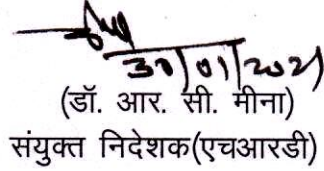 30/01/2021
(डॉ. आर. सी. मीना)
संयुक्त निदेशक(एचआरडी)